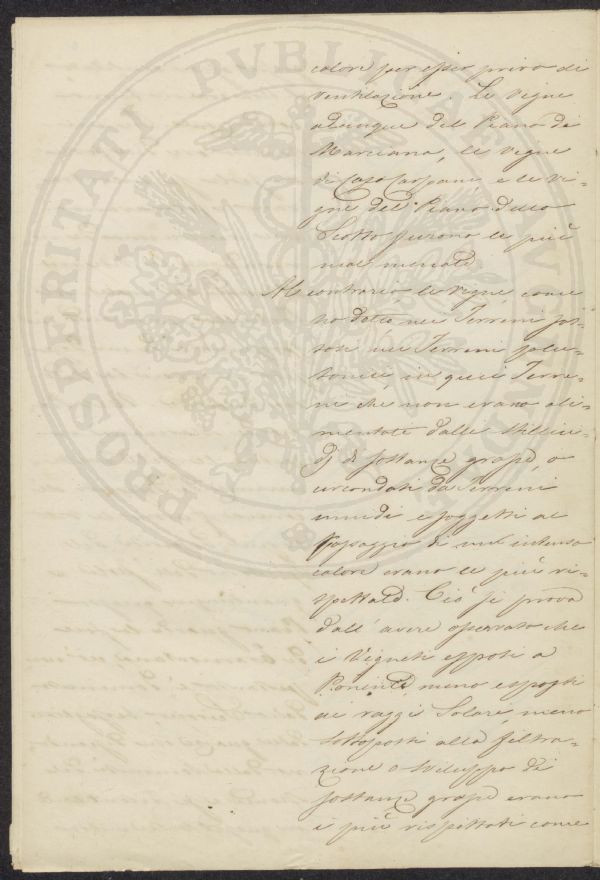 calore per esser privo di
ventilazione. Le vigne
adunque del Piano di
Marciana, le vigne
di Capo Carpani e le vi=
gne del Piano dello
Scotto furono le più
mal menate.
Al contrario, le vigne, come
ho detto, nei Terreni
nei Terreni
in quei Terre=
ni che non erano ali=
mentate dalle stillici=
di di sostanze grasse, o
circondati da Terreni
umidi e soggetti al
passaggio di un intenso
calore erano le più ri=
spettate. Ciò si prova
dall' avere osservato che
i Vigneti esposti a
Ponente meno esposti
ai raggi Solari, meno
sottoposti alla filtra=
zione o sviluppo di
sostanze grasse erano
i più rispettati come
PROSPERITATI PVBLICAE